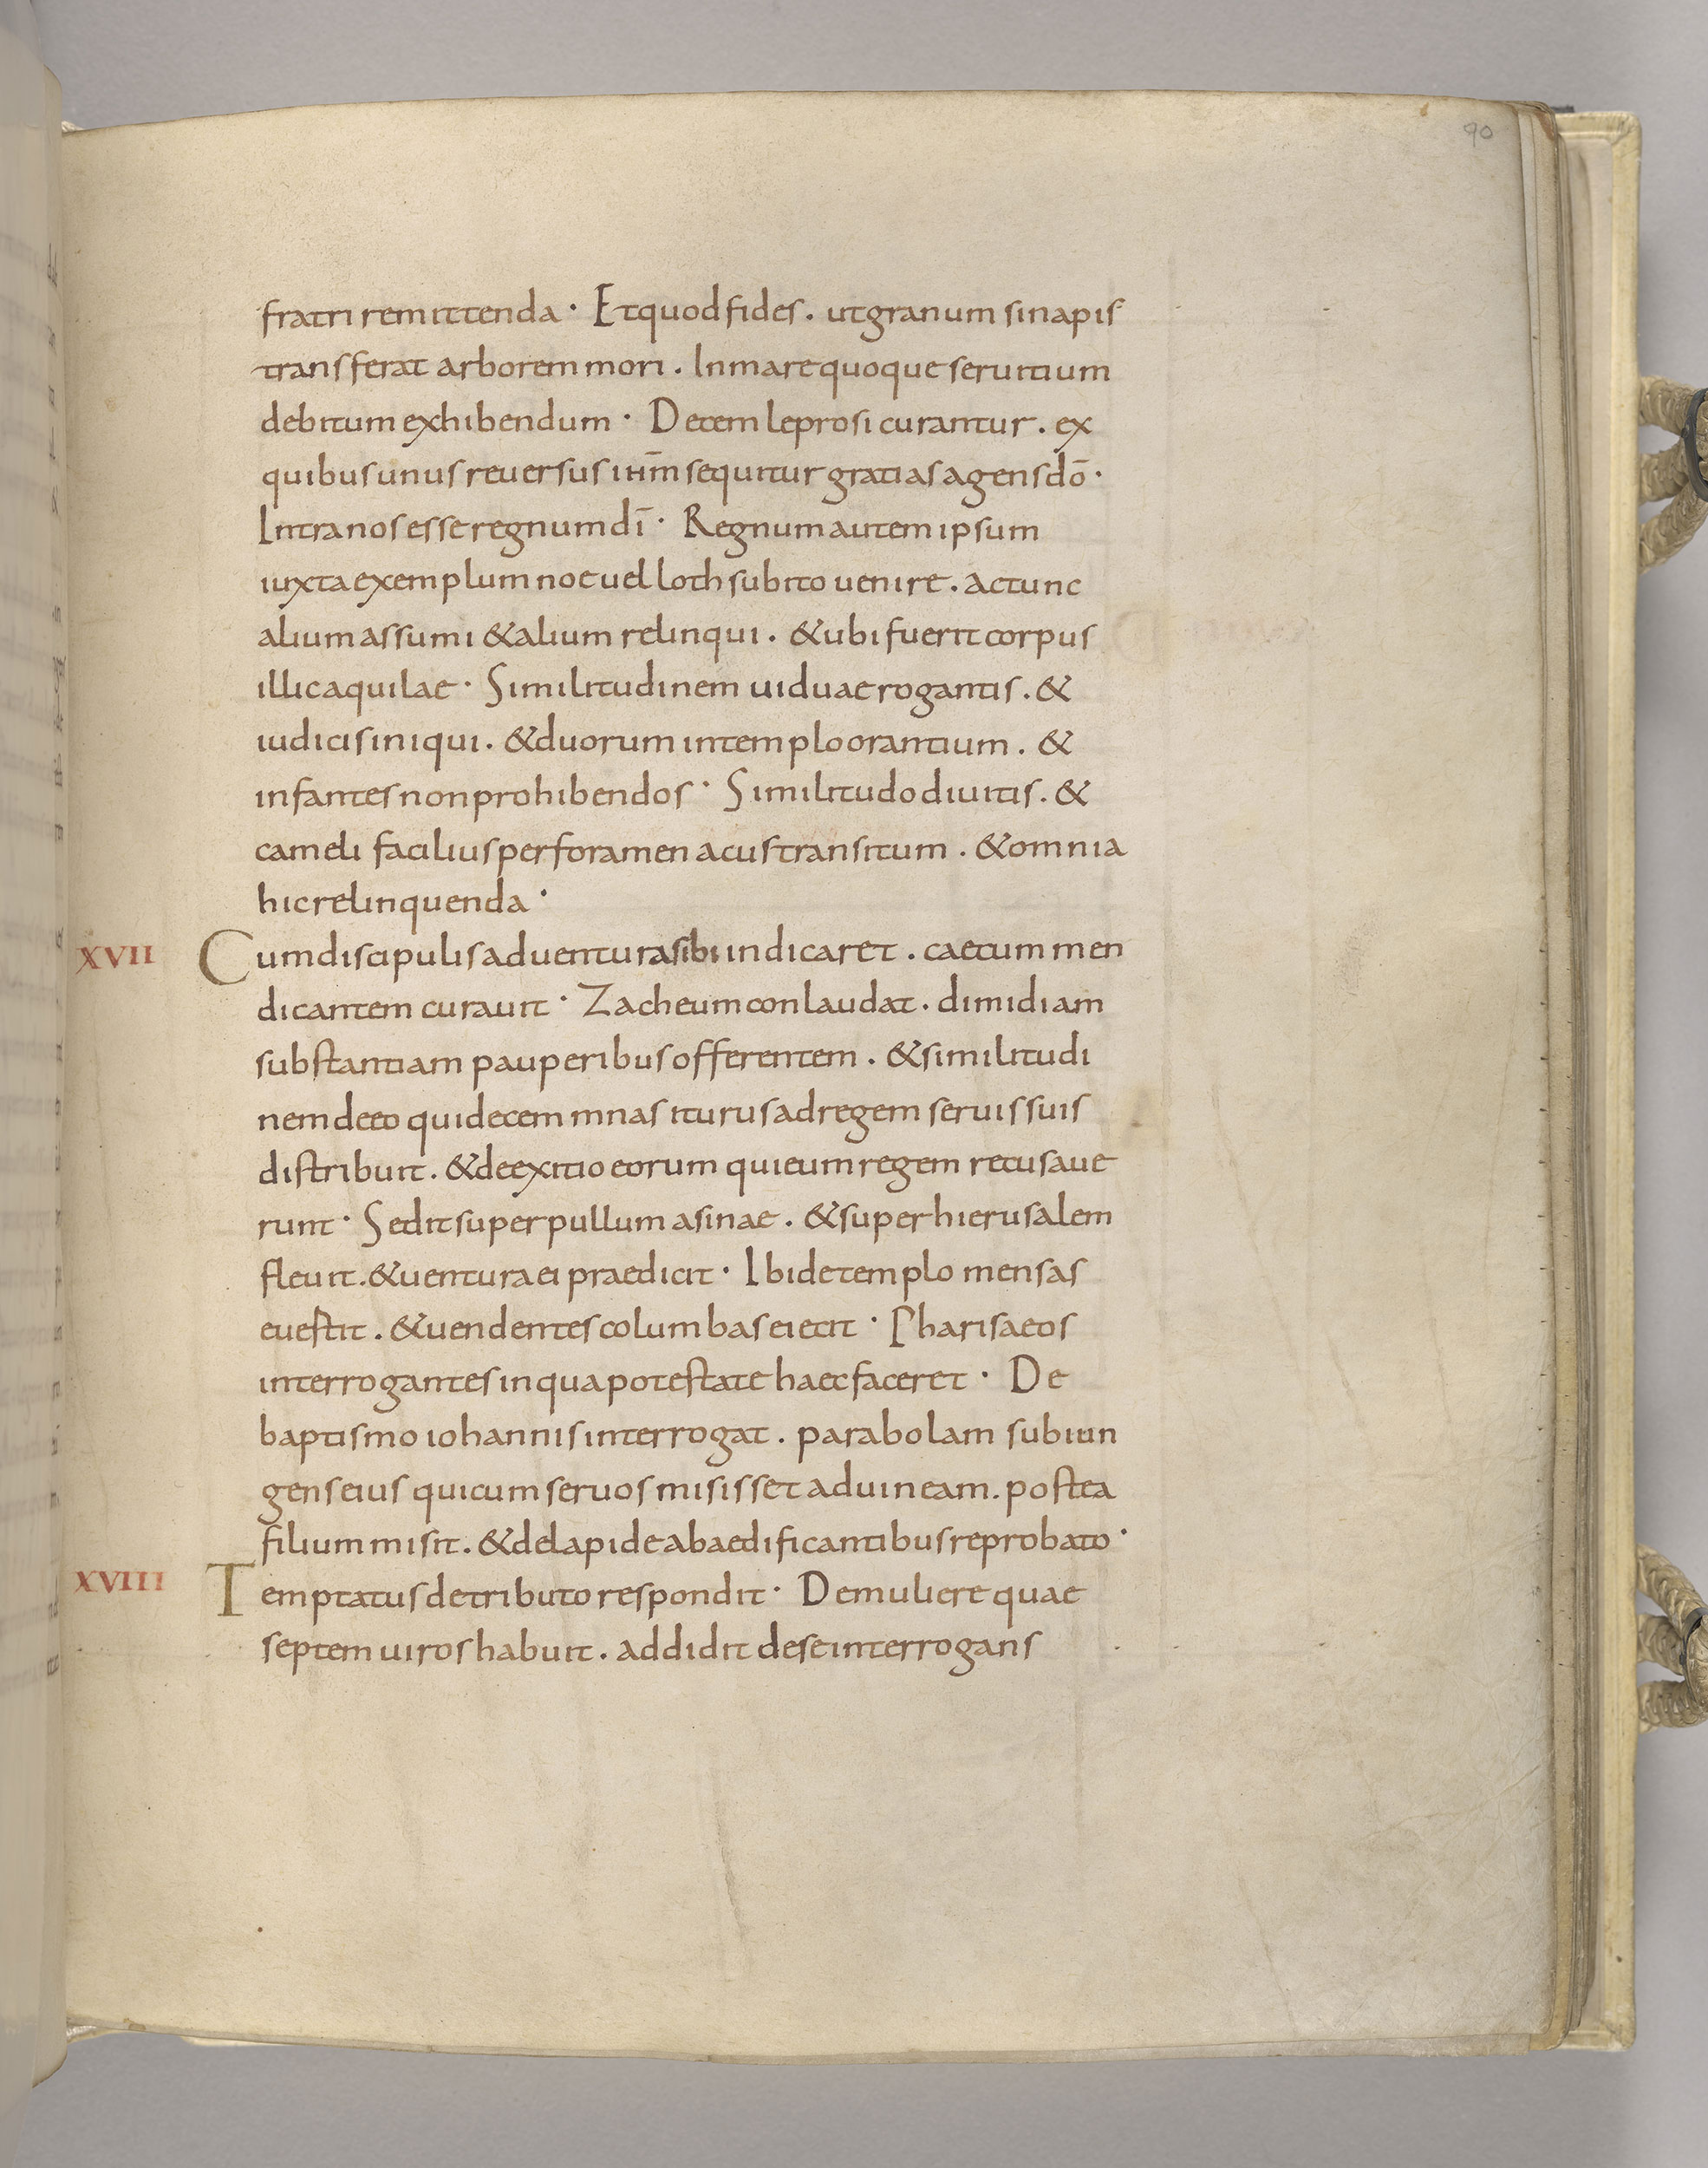 90
fratri remittenda · Et quod fides . ut granum sinapis
transferat arborem mori . In mare quoque seruitium
debitum exhibendum · Decem leprosi curantur . ex
quibus unus reuersus ihm̄ sequitur gratias agens dō ·
Intra nos esse regnum dī · Regnum autem ipsum
iuxta exemplum noe uel loth subito uenire . ac tunc
alium assumi & alium relinqui . & ubi fuerit corpus
illic aquilae · Similitudinem uiduae rogantis . &
iudicis iniqui . & duorum in templo orantium . &
infantes non prohibendos · Similitudo diuitis . &
cameli facilius per foramen acus transitum . & omnia
hic relinquenda ·
XVII Cum discipulis aduentura sibi indicaret . caecum men
dicantem curauit · Zacheum conlaudat . dimidiam
substantiam pauperibus offerentem . & similitudi
nem de eo qui decem mnas iturus ad regem seruis suis
distribuit . & de exitio eorum qui eum regem recusaue
runt · Sedit super pullum asinae . & super hierusalem
fleuit . & uentura ei praedicit · Ibi de templo mensas
euertit . & uendentes columbas eiecit · Pharisaeos
interrogantes in qua potestate haec faceret · De
baptismo iohannis interrogat . parabolam subiun
gens eius qui cum seruos misisset ad uineam . postea
filium misit . & de lapide ab aedificantibus reprobato ·
XVIII Temptatus de tributo respondit · De muliere quae
septem uiros habuit . addidit de se interrogans